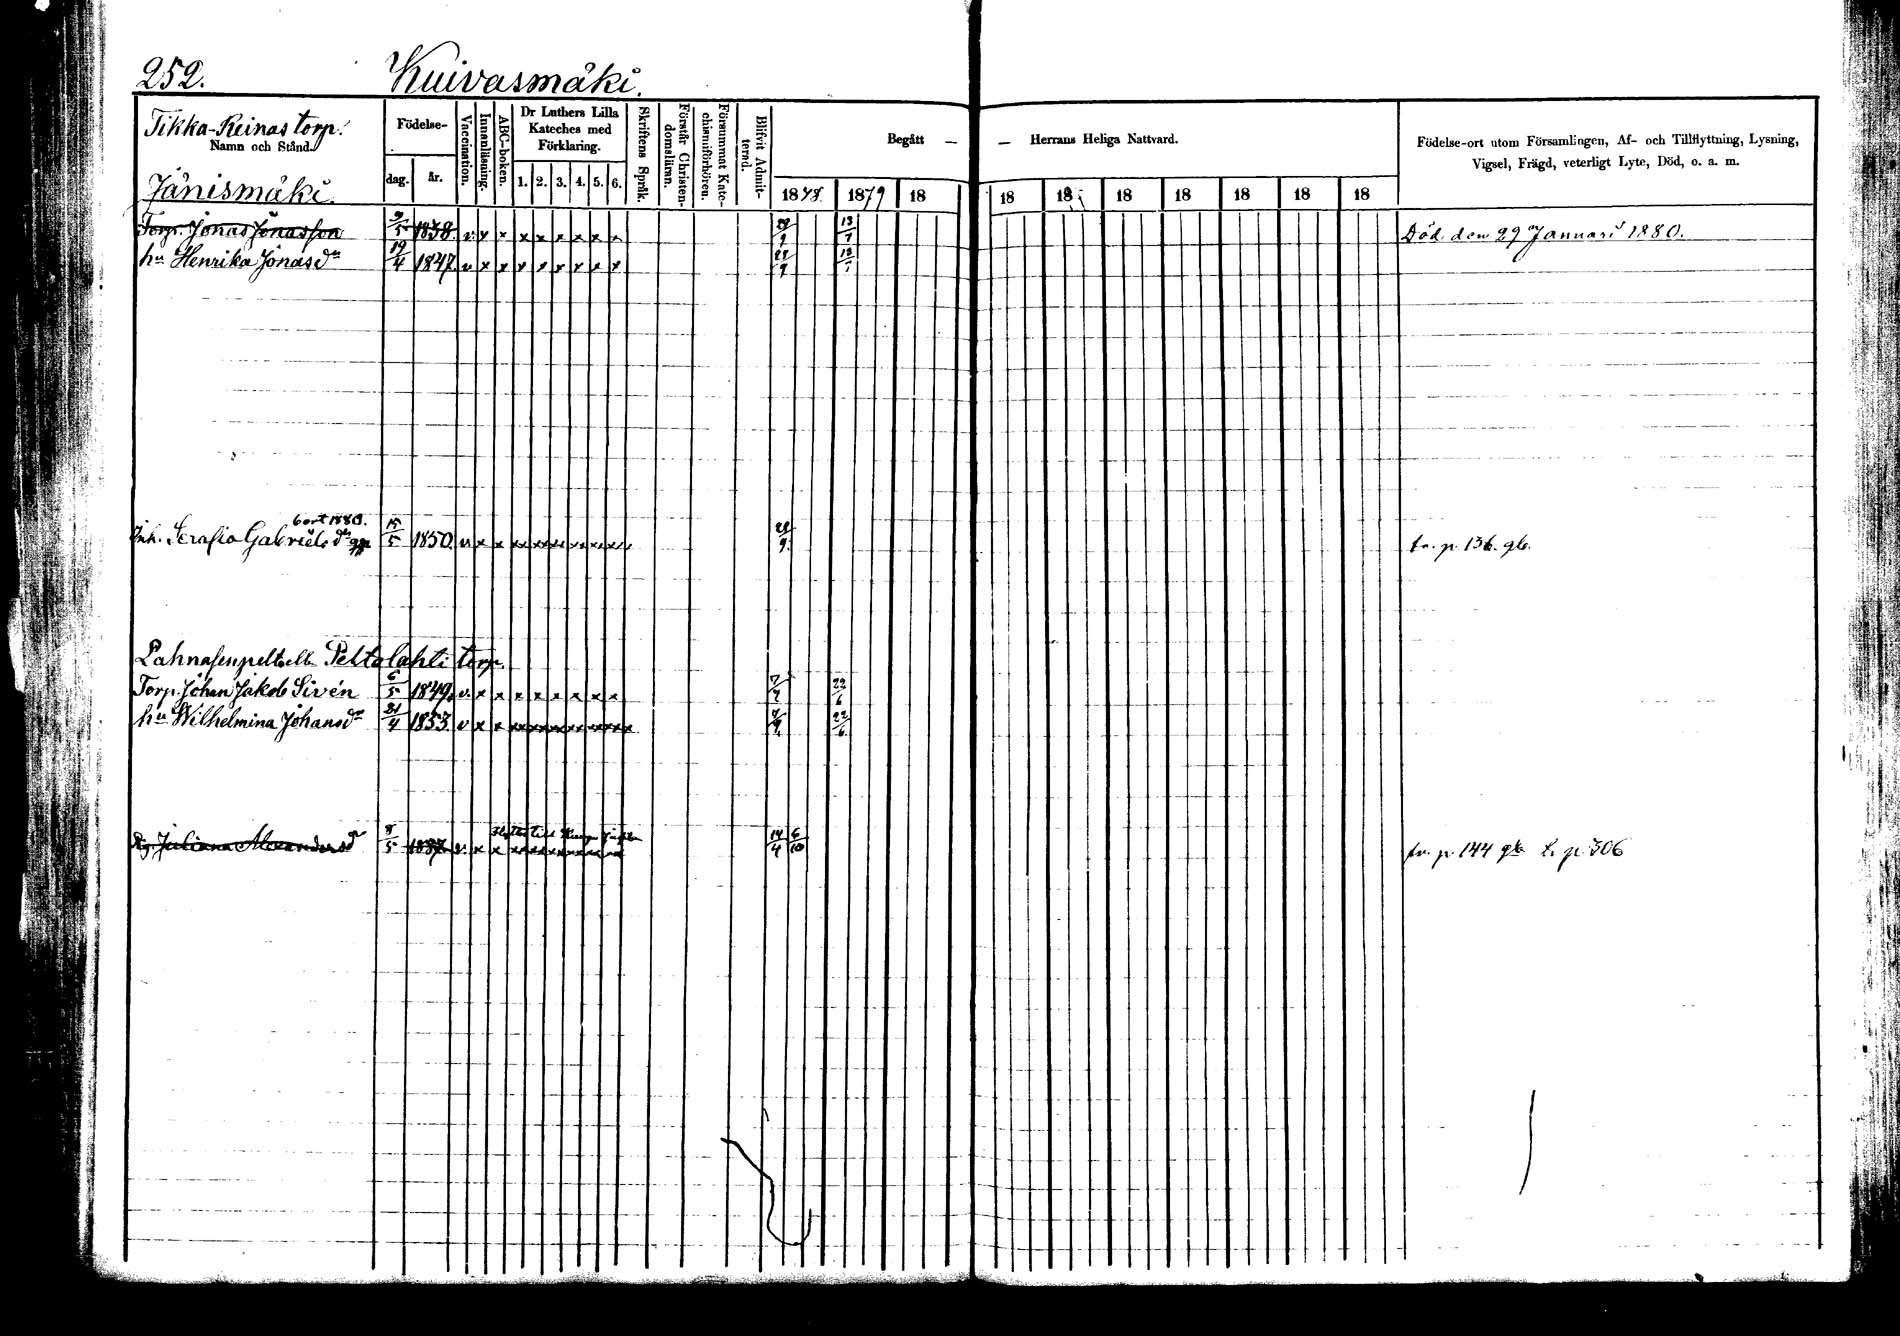 252. Kuivasmäki.
Tikka-Reinas torp.
Namn och Stånd.
Jänismäki.
Födelse-
dag. år.
Vaccination.
Innanläsning.
ABC-boken.
Dr Luthers Lilla
Kateches med
Förklaring.
1. 2. 3. 4. 5. 6.
Skriftens Språk.
Förstår Christen-
domslämn.
Försummat Kate-
chismiförhören.
Blifvit Admit-
terad.
Begått —
— Herrans Heliga Nattvard.
1878. 1879 18
18 18 18 18 18 18 18
Födelse-ort utom Församlingen, Af- och Tillflyttning, Lysning,
Vigsel, Frägd, veterligt Lyte, Död, o. a. m.
Torp. Jonas Jonasson 9/5 1838. v. x x x x x x x x 13/7 Död den 29 Januari 1880.
hu Henrika Jonasdr 19/4 1847. v x x x x x x x x 13/7
bort 1880.
Inh. Serafia Gabrielsdr 15/5 1850. v x x 
tr. p. 136. gb.
Lahnasenpelto ell. Peltolahti torp.
Torp. Johan Jakob Sivén 6/5 1849. v. x x x x x x x x 7/7 22/6
hu Wilhelmina Johansdr 21/4 1853. v x x 7/7 22/6
Juliana Alexandersdr 8/5 1837. v. x x 14/4 6/10 tr. p. 144 gb. t. p. 306